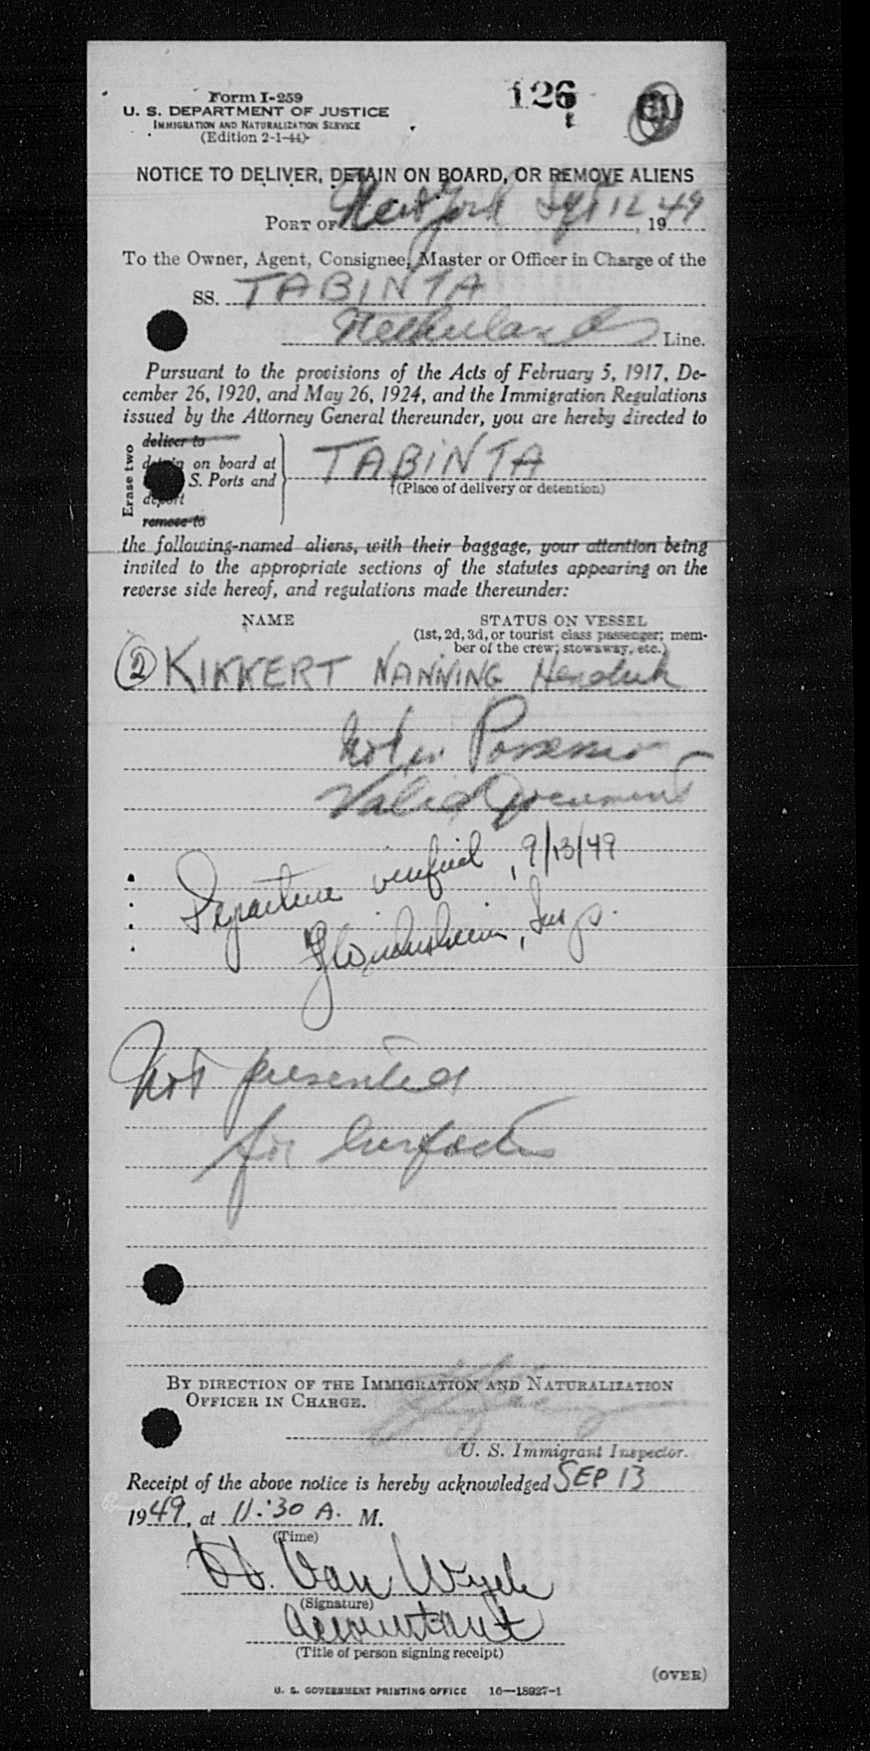 Form I-259
126
U. S. DEPARTMENT OF JUSTICE
IMMIGRATION AND NATURALIZATION SERVICE
(Edition 2-1-44)
NOTICE TO DELIVER, DETAIN ON BOARD, OR REMOVE ALIENS
PORT OF New York Sept 12, 1949
To the Owner, Agent, Consignee, Master or Officer in Charge of the
SS. TABINTA
Netherlands Line.
Pursuant to the provisions of the Acts of February 5, 1917, De-
cember 26, 1920, and May 26, 1924, and the Immigration Regulations
issued by the Attorney General thereunder, you are hereby directed to
Erase two
deliver to
on board at
S. Ports and
remove to
TABINTA
(Place of delivery or detention)
the following-named aliens, with their baggage, your attention being
invited to the appropriate sections of the statutes appearing on the
reverse side hereof, and regulations made thereunder:
NAME STATUS ON VESSEL
(1st, 2d, 3d, or tourist class passenger; mem-
ber of the crew; stowaway, etc.)
(2) KIKKERT NANNING Hendrik
Not in Possession
Valid Document
Departure verified, 9/13/49
Insp.
Not presented
for
BY DIRECTION OF THE IMMIGRATION AND NATURALIZATION
OFFICER IN CHARGE.
U. S. Immigrant Inspector.
Receipt of the above notice is hereby acknowledged SEP 13
1949, at 11:30 A. M.
(Time)
Van Wyck
(Signature)
Accountant
(Title of person signing receipt)
(OVER)
U. S. GOVERNMENT PRINTING OFFICE 16—18927-1